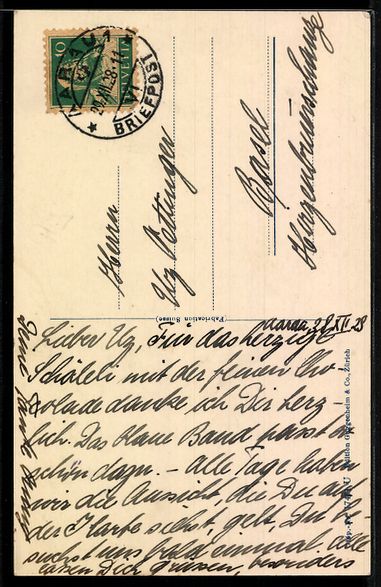 AARAU 1
BRIEFPOST
28.XII.28
10
HELVETIA
Herrn
Uz Oettinger
Basel
(Fabrication Suisse)
Aarau, 28 XII 28
Lieber Uz, Für das herzige
Schäleli mit der feinen Cho-
kolade danke ich Dir herz-
lich. Das blaue Band passt
schön dazu. — Alle Tage haben
wir die Aussicht, die Du auf
der Karte siehst, gelt, Du be-
suchst uns bald einmal. Alle
lassen Dich grüssen, besonders
Guggenheim & Co., Zürich